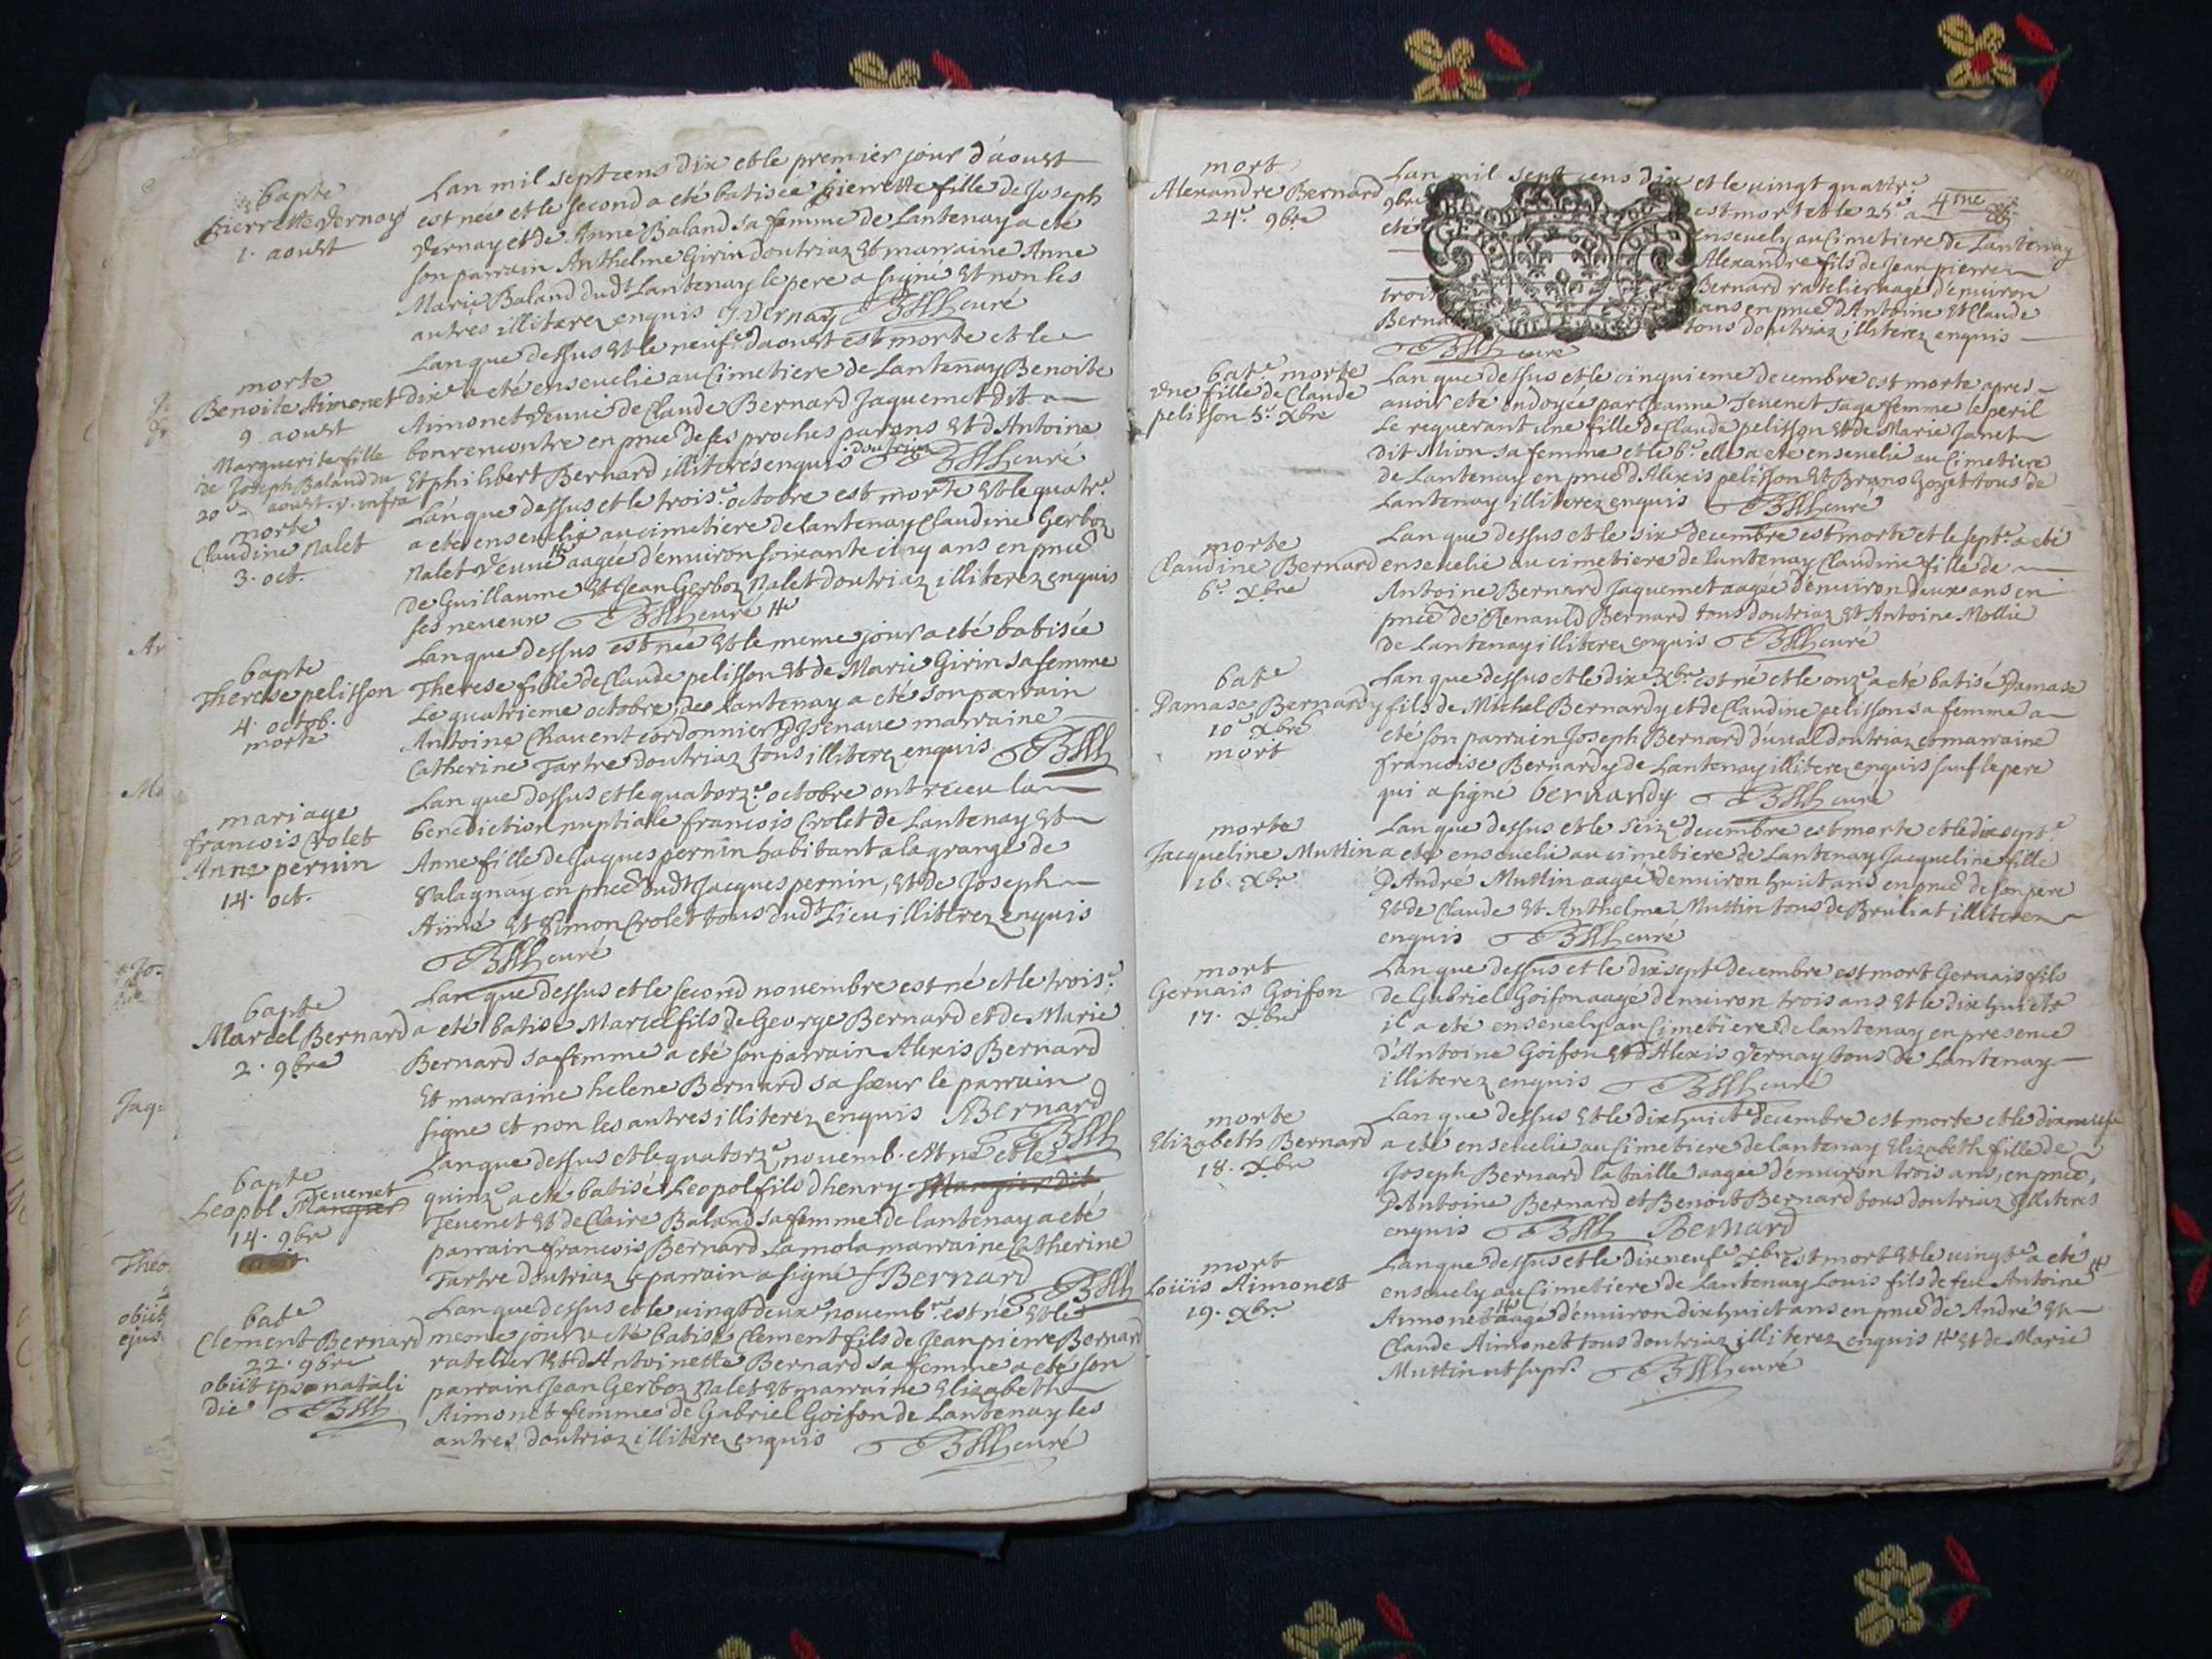 bapte
Pierrette Vernay
1. aoust
Lan mil sept cens dix et le premier jour d'aoust
est née et le second a eté batisée pierrette fille de Joseph
Vernay et de Anne Baland sa femme de Lantenay a eté
son parrain Anthelme Girin doutriaz Et marraine Anne
Marie Baland dudt Lantenay le pere a signé Et non les
autres illiterez enquis J. Vernay curé
morte
Benoite Aimonet
9 aoust
Lan que dessus Et le neufe daoust est morte et le
dixe a eté enseuelie au Cimetiere de Lantenay Benoite
Aimonet Veuue de Claude Bernard Jaquemet dit
bonrencontre en pnce de ses proches parens Et d'Antoine
Et philibert Bernard doutriaz illiterés enquis curé
Marguerite fille
de Joseph Baland du
20e aoust. v. infra
morte
Claudine Nalet
3. oct.
Lan que dessus et le troise. octobre est morte Et le quatre.
a eté enseuelie au cimetiere de lantenay Claudine Gerboz
Nalet Veuue aagée denuiron soixante cinq ans en pnce
de Guillaume Et Jean Gerboz Nalet doutriaz illiterez enquis
ses neueux curé
bapte
Therese pelisson
4. octob.
morte
Lan que dessus est née Et le meme jour a eté batisée
Therese fille de Claude pelisson Et de Marie Girin sa femme
Le quatrieme octobre, de Lantenay a eté son parrain
Antoine Chauent cordonnier D'Isenaue marraine
Catherine Tartre doutriaz tous illiterez enquis
mariage
francois Crolet
Anne pernin
14. oct.
Lan que dessus et le quatorze. octobre ont receu la
benediction nuptiale francois Crolet de Lantenay Et
Anne fille de Jaques pernin habitant a la grange de
Valagnay en pnce dudt Jacques pernin, Et de Joseph
Aimé Et Simon Crolet tous dudt Lieu illiterez enquis
curé
bapte
Marcel Bernard
2. 9bre
Lan que dessus et le second nouembre est né et le troise.
a eté batisé Marcel fils de George Bernard et de Marie
Bernard sa femme a eté son parrain Alexis Bernard
Et marraine helene Bernard sa sœur le parrain
signe et non les autres illiterez enquis ABernard
bapte
Teuenet
Leopol Mangier
14. 9bre
Lan que dessus et le quatorze, nouemb. est né et le
quinze a eté batisé Leopol fils d'henry Mangier dit
Teuenet Et de Claire Baland sa femme de lantenay a eté
parrain francois Bernard Lamola marraine Catherine
Tartre doutriaz le parrain a signé f Bernard
bate
Clement Bernard
22. 9bre
obiit ipso natali
die
Lan que dessus et le uingt deuxe nouembre est né Et le
meme jour a eté batisé Clement fils de Jean pierre Bernard
ratelier Et d'Antoinette Bernard sa femme a eté son
parrain Jean Gerboz Nalet Et marraine Elizabeth
Aimonet femme de Gabriel Goifon de Lantenay les
autres doutriaz illiterez enquis curé
mort
Alexandre Bernard
24e. 9bre
Lan mil sept cens dix et le uingt quatre.
9bre est mort et le 25e a 4me
eté enseuely au Cimetiere de Lantenay
Alexandre fils de Jean pierre
Bernard ratelier aagé d'enuiron
trois ans en pnce d'Antoine Et Claude
Bernard tous doutriaz illiterez enquis
curé
bate morte
Vne fille de Claude
pelisson 5e. Xbre
Lan que dessus et le cinquieme decembre est morte apres
auoir eté ondoyée par Jeanne Teuenet sage femme le peril
Le requerant une fille de Claude pelisson Et de Marie Janet
dit Mion sa femme et le 6e. elle a eté enseuelie au Cimetiere
de Lantenay en pnce d'Alexis pelisson Et Bruno Goyet tous de
Lantenay illiterez enquis curé
morte
Claudine Bernard
6e. Xbre
Lan que dessus et le six decembre est morte et le septe a eté
enseuelie au cimetiere de Lantenay Claudine fille de
Antoine Bernard Jaquemet aagée d'enuiron deux ans en
pnce de Renauld Bernard tous doutriaz Et Antoine Mollie
de Lantenay illiterez enquis curé
bate
Damase Bernardy
10e Xbre
mort
Lan que dessus et le dixe Xbre est né et le onze a eté batisé Damase
fils de Michel Bernardy et de Claudine pelisson sa femme a
eté son parrain Joseph Bernard duual doutriaz et marraine
francoise Bernardy de Lantenay illiterez enquis sauf le pere
qui a signe bernardy curé
morte
Jacqueline Muttin
16. Xbre
Lan que dessus et le seize decembre est morte et le dix septe.
a eté enseuelie au cimetiere de Lantenay Jacqueline fille
D'André Muttin aagée denuiron huict ans en pnce de son pere
Et de Claude Et Anthelme Muttin tous de Bruliat illiterez
enquis curé
mort
Geruais Goifon
17. Xbre
Lan que dessus et le dixsept decembre est mort Geruais fils
de Gabriel Goifon aagé denuiron trois ans Et le dix huicte
il a eté enseuely au Cimetiere de lantenay en presence
d'Antoine Goifon Et d'Alexis Vernay tous de Lantenay
illiterez enquis curé
morte
Elizabeth Bernard
18. Xbre
Lan que dessus Et le dixhuicte decembre est morte et le dixneufe
a eté enseuelie au Cimetiere de lantenay Elizabeth fille de
Joseph Bernard la taille aagée denuiron trois ans, en pnce,
D'Antoine Bernard et Benoit Bernard tous doutriaz illiterés
enquis Bernard
mort
Loüis Aimonet
19. Xbre
Lan que dessus et le dixneufe Xbre est mort Et le uingte a eté
enseuely au Cimetiere de Lantenay Louis fils de feu Antoine
Aimonet aagé d'enuiron dixhuict ans en pnce de André Et
Claude Aimonet tous doutriaz illiterez enquis Et de Marie
Muttin ut supr. curé